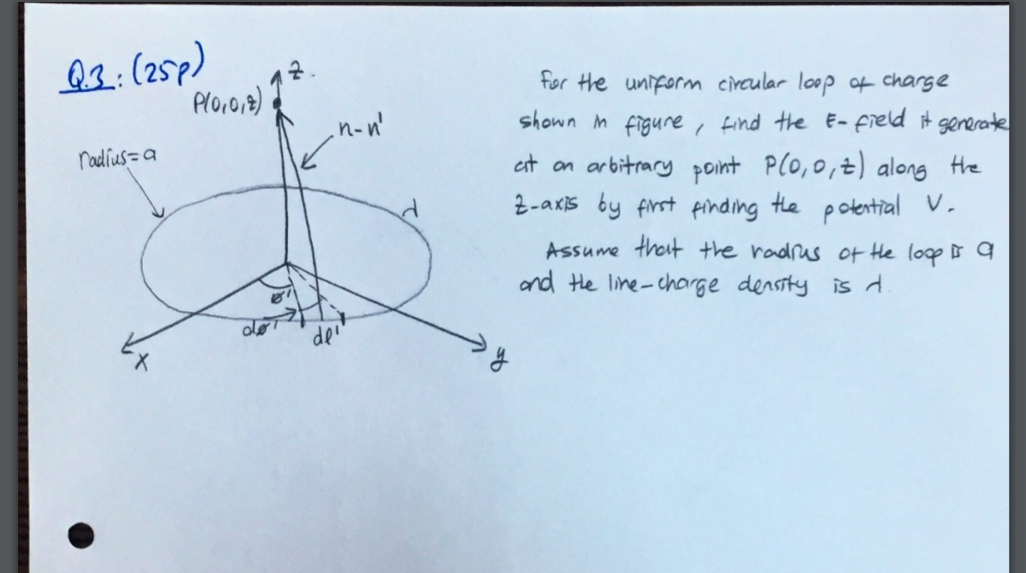 Q.3: (25p)
z
P(0,0,z)
r-r'
radius=a
λ
ø'
dø'
dl'
x
y
For the uniform circular loop of charge
shown in figure, find the E-field it generate
at an arbitrary point P(0,0,z) along the
z-axis by first finding the potential V.
Assume that the radius of the loop is a
and the line-charge density is λ.